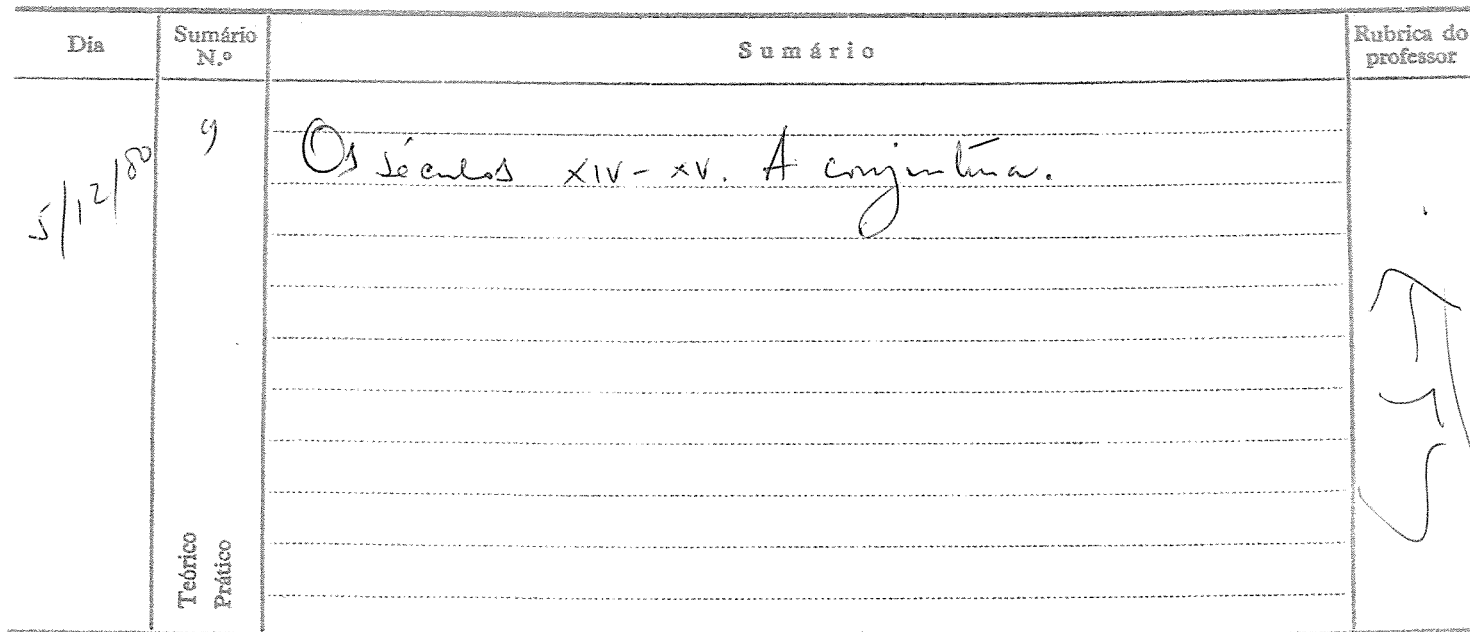 Dia
Sumário N.º
Sumário
Rubrica do professor
5/12/80
9
Os séculos XIV-XV. A conjuntura.
Teórico
Prático